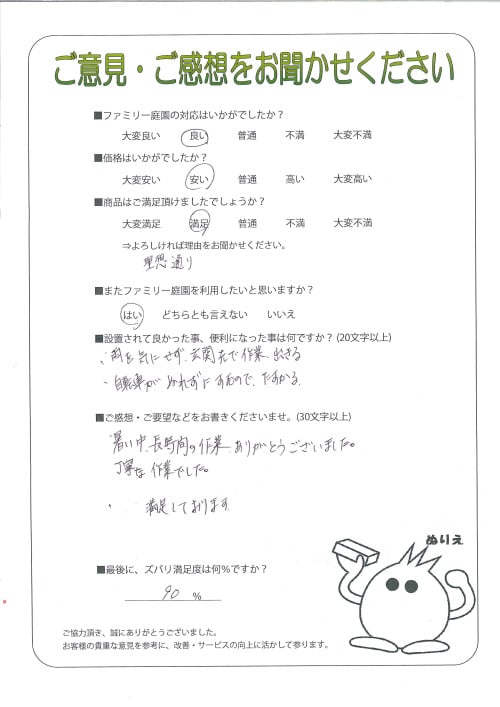 ご意見・ご感想をお聞かせください
■ファミリー庭園の対応はいかがでしたか？
大変良い　良い　普通　不満　大変不満
■価格はいかがでしたか？
大変安い　安い　普通　高い　大変高い
■商品はご満足頂けましたでしょうか？
大変満足　満足　普通　不満　大変不満
⇒よろしければ理由をお聞かせください。
理想通り
■またファミリー庭園を利用したいと思いますか？
はい　どちらとも言えない　いいえ
■設置されて良かった事、便利になった事は何ですか？(20文字以上)
・雨を気にせず、玄関先で作業出きる
・自転車がぬれずにすむので、たすかる
■ご感想・ご要望などをお書きくださいませ。(30文字以上)
暑い中、長時間の作業、ありがとうございました。
丁寧な作業でした。
・　満足しております
ぬりえ
■最後に、ズバリ満足度は何％ですか？
90 ％
ご協力頂き、誠にありがとうございました。
お客様の貴重な意見を参考に、改善・サービスの向上に活かして参ります。